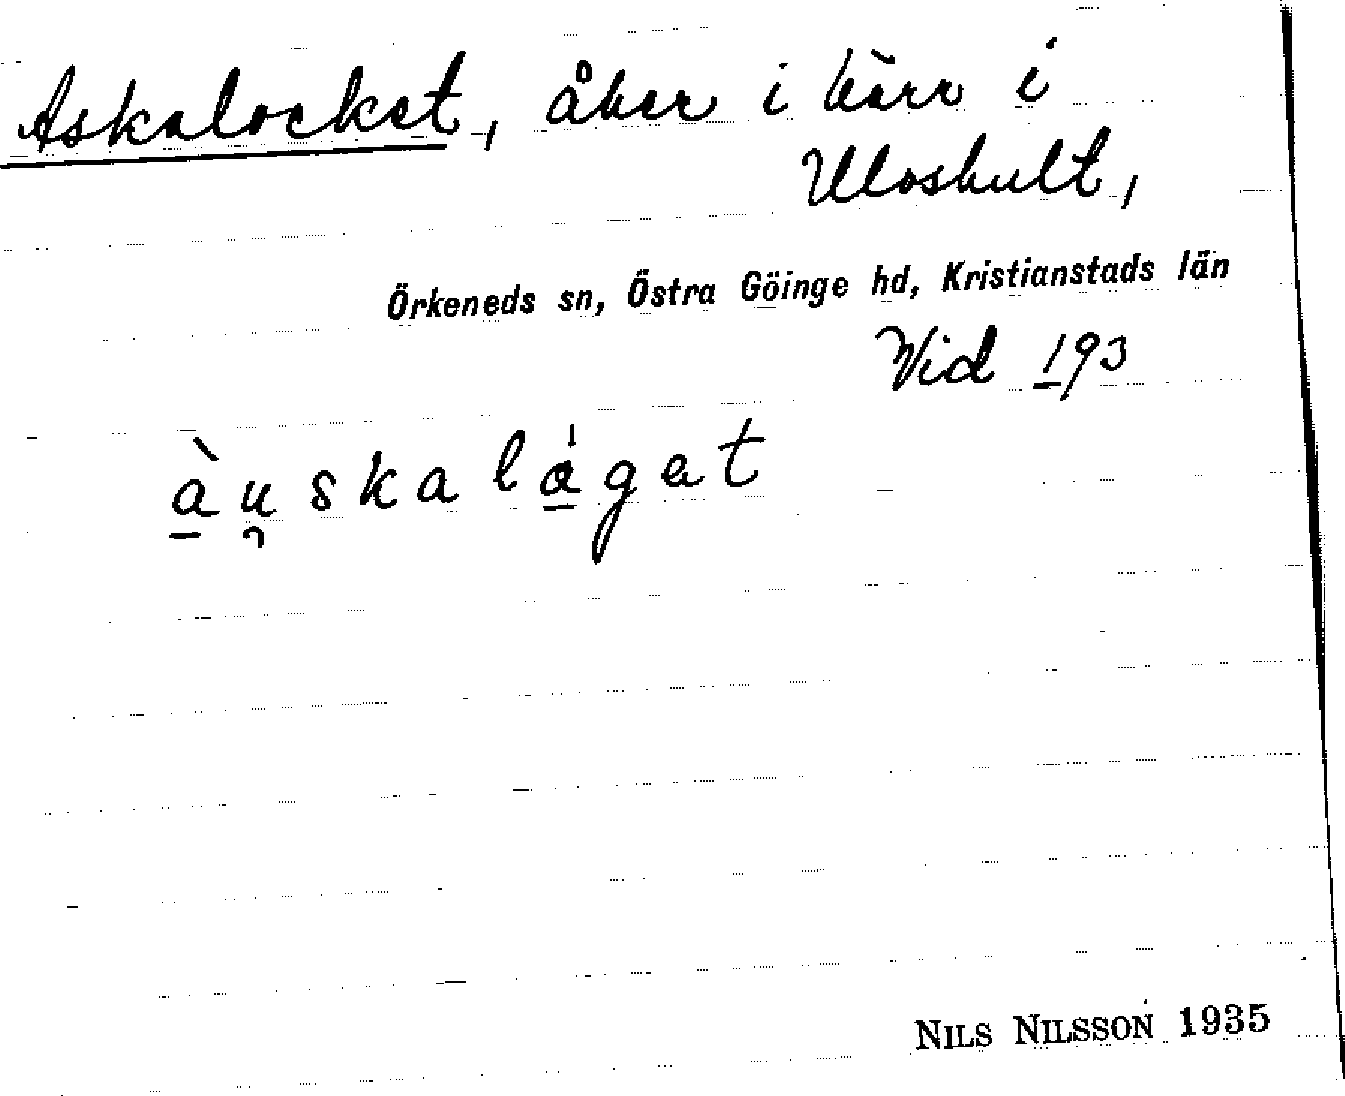 Askalocket, åker i kärr i
Uloshult,
Örkeneds sn, Östra Göinge hd, Kristianstads län
Vid 193
àu̯skalágat
NILS NILSSON 1935